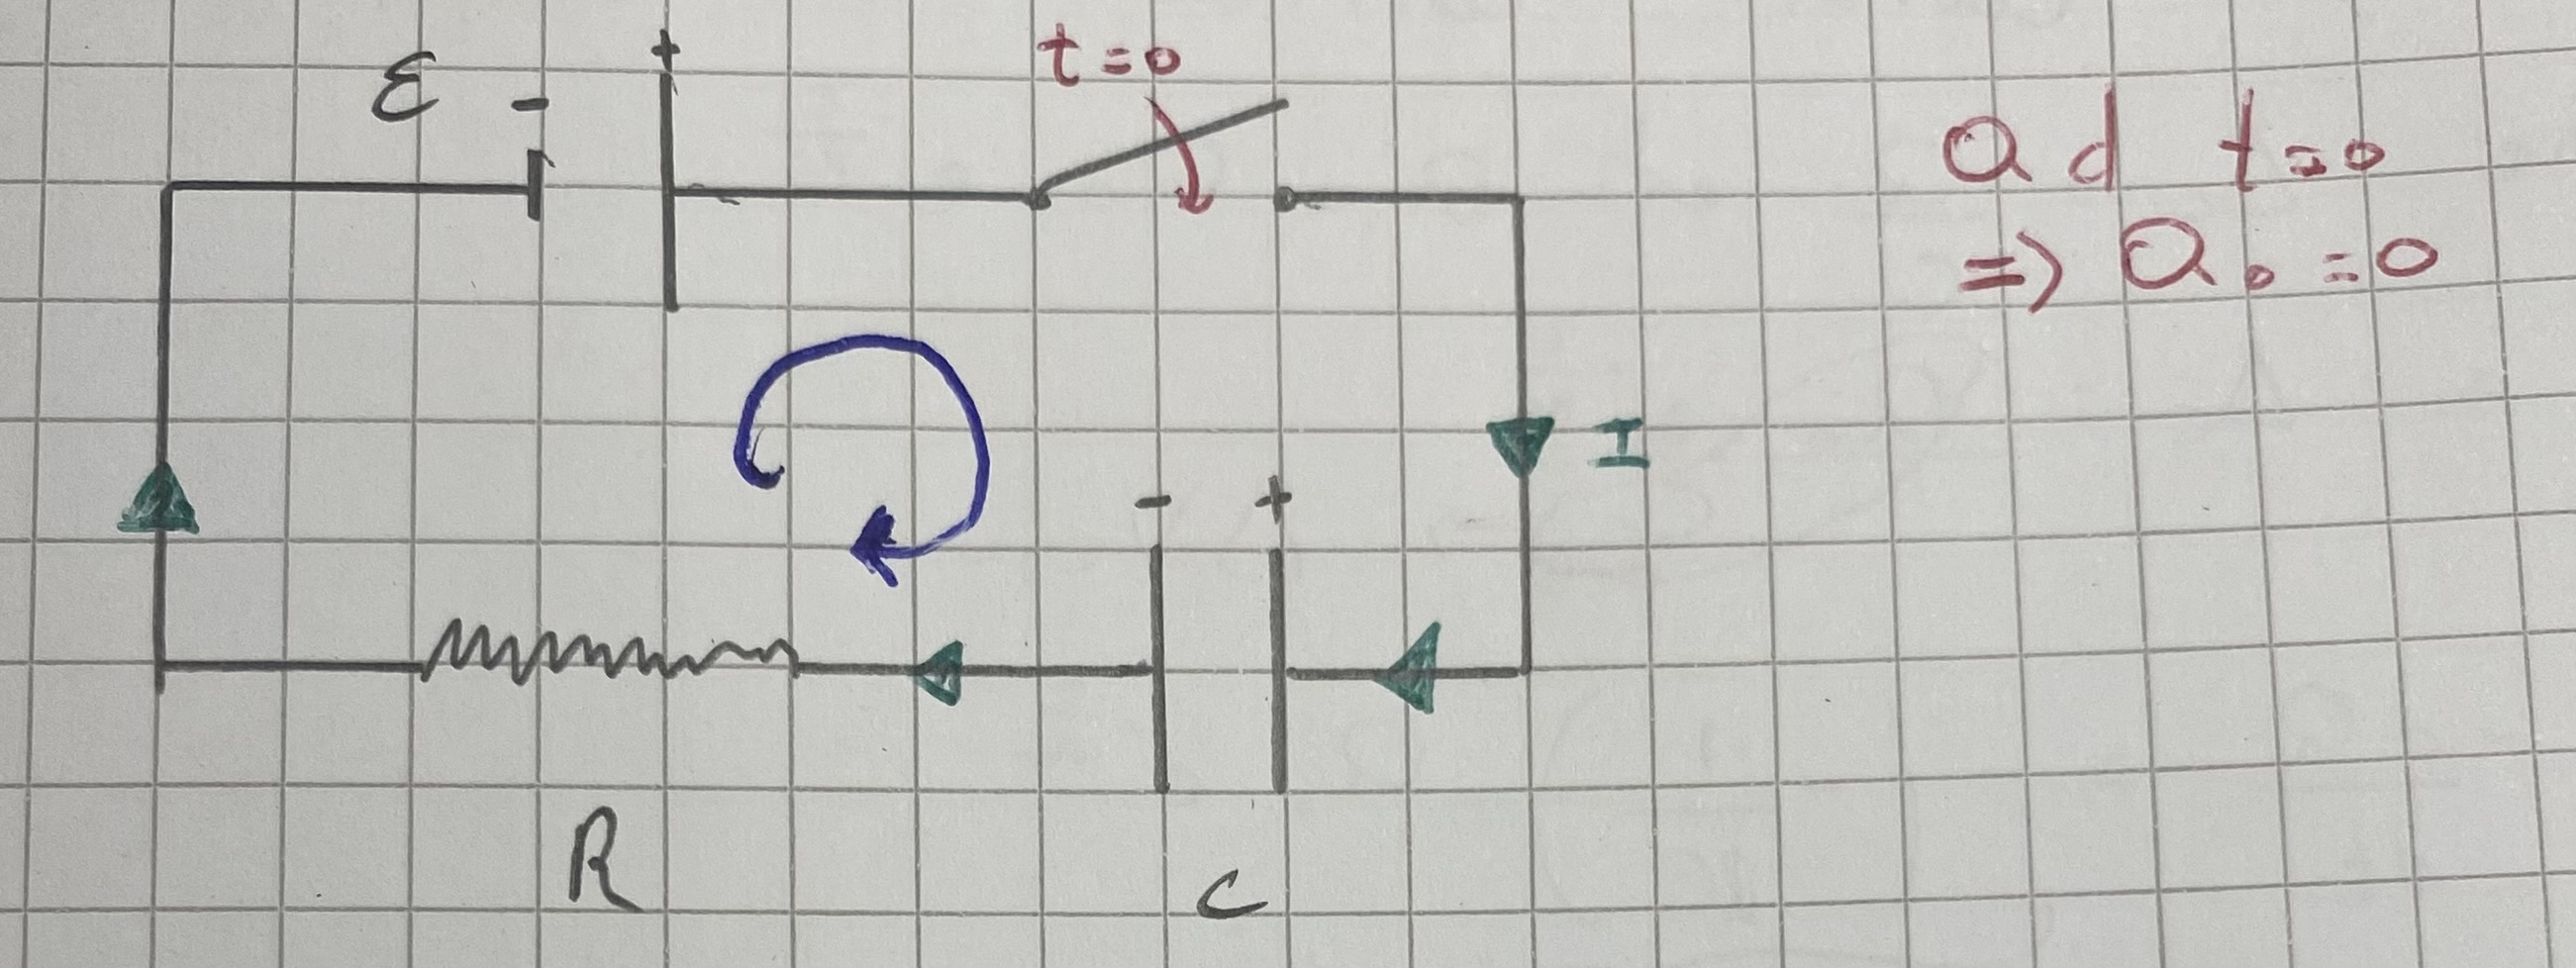 ε - +
t=0
a d t=0
=> Q₀ =0
I
- +
R
C